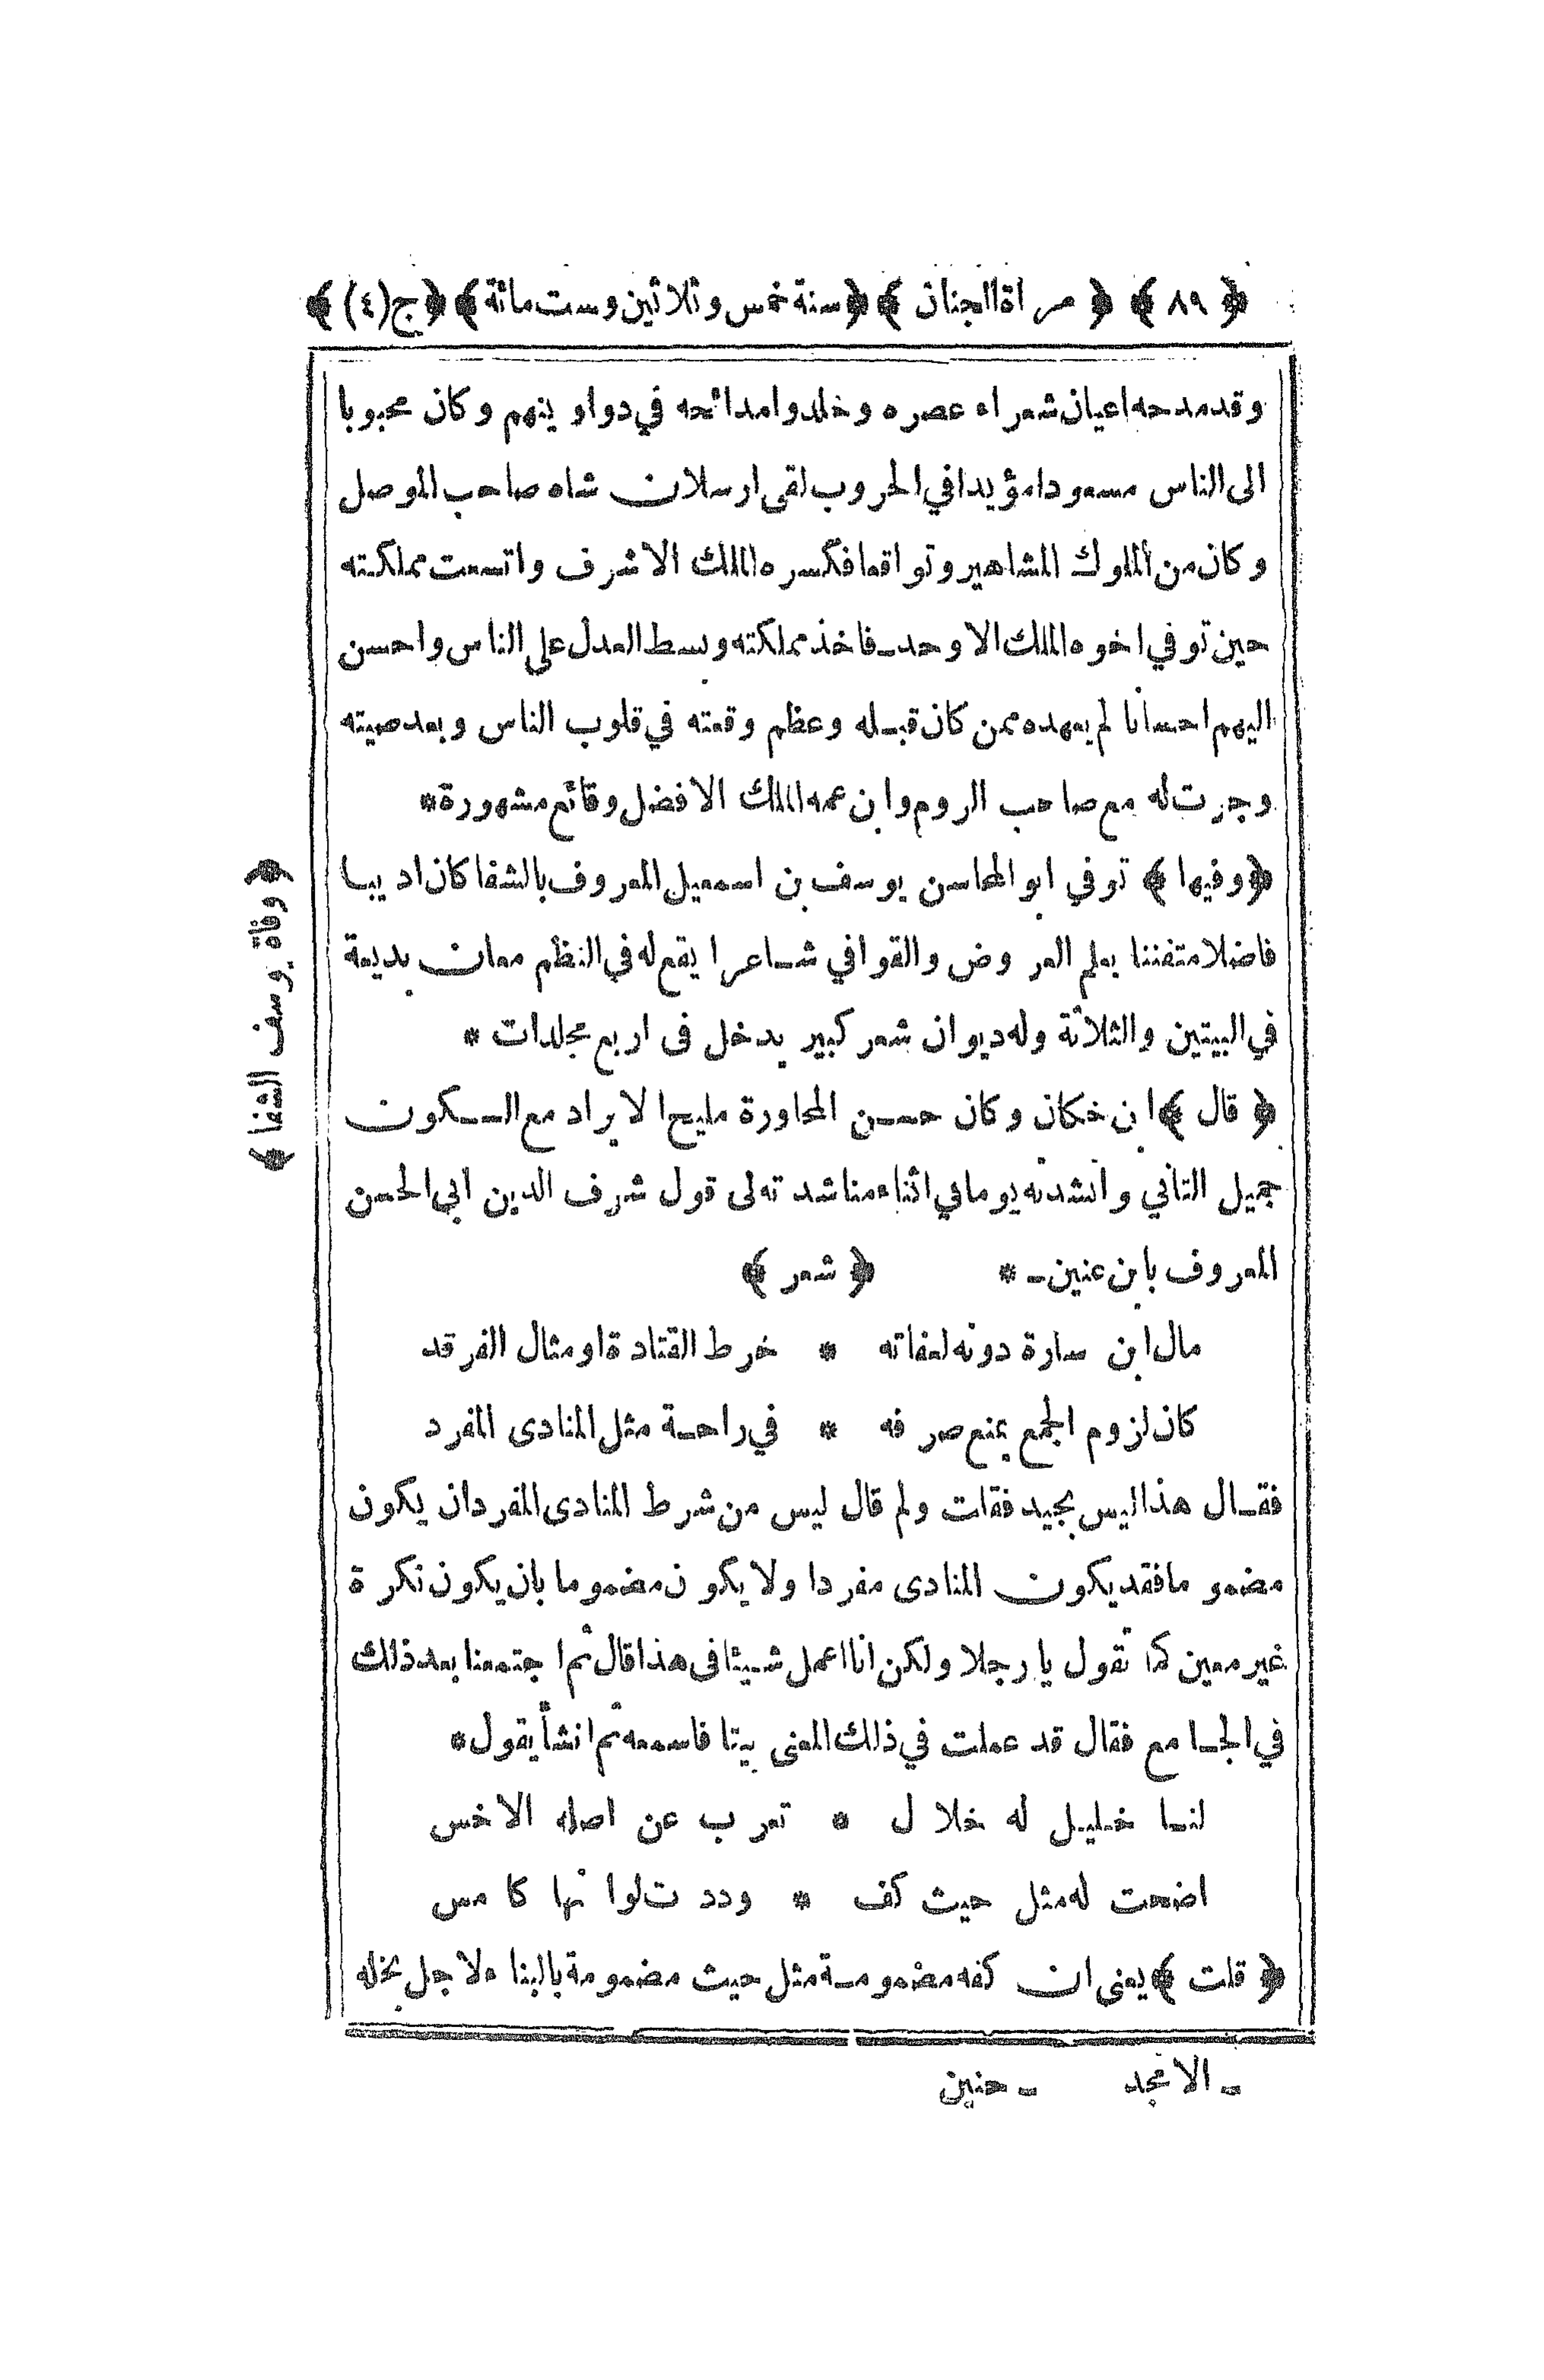 ﴿ ٨٩ ﴾ ﴿ مراة الجنان ﴾ ﴿ سنة خمس وثلاثين وست مائة ﴾ ﴿ ج (٤) ﴾
وقد مدحه اعيان شعراء عصره وخلدوا مدائحه في دواوينهم وكان محبوبا
الى الناس مسعودا مؤيدا في الحروب لقى ارسلان شاه صاحب الموصل
وكان من الملوك المشاهير وتواقعا فكسره الملك الاشرف واتسعت مملكته
حين توفي اخوه الملك الاوحد ـ فاخذ مملكته وبسط العدل على الناس واحسن
اليهم احسانا لم يعهده ممن كان قبله وعظم وقعته في قلوب الناس وبعد صيته
وجرت له مع صاحب الروم وابن عمه الملك الافضل وقائع مشهورة *
﴿ وفيها ﴾ توفي ابو المحاسن يوسف بن اسمعيل المعروف بالشفا كان اديبا
فاضلا متفننا بعلم العروض والقوافي شاعرا يقع له في النظم معان بديعة
في البيتين والثلاثة وله ديوان شعر كبير يدخل فى اربع مجلدات *
﴿ قال ﴾ ابن خلكان وكان حسن المحاورة مليح الايراد مع السكون
جميل التاني وانشدته يوما في اثناء مناشدته لى قول شرف الدين ابي الحسن
المعروف بابن عنين ـ * ﴿ شعر ﴾
مال ابن سارة دونه لعفاته * خرط القتادة او مثال الفرقد
كان لزوم الجمع يمنع صرفه * في راحة مثل المنادى المفرد
فقال هذا ليس بجيد فقلت ولم قال ليس من شرط المنادى المفرد ان يكون
مضموما فقد يكون المنادى مفردا ولا يكون مضموما بان يكون نكرة
غير معين كما تقول يا رجلا ولكن انا اعمل شيئا فى هذا قال ثم اجتمعنا بعد ذلك
في الجامع فقال قد عملت في ذلك المعنى بيتا فاسمعه ثم انشأ يقول *
لنا خليل له خلال * تعرب عن اصله الاخس
اضحت له مثل حيث كف * وددت لو انها كامس
﴿ قلت ﴾ يعنى ان كفه مضمومة مثل حيث مضمومة بالبناء لاجل بخله
ـ الامجد ـ حنين
﴿ وفاة يوسف الشفا ﴾